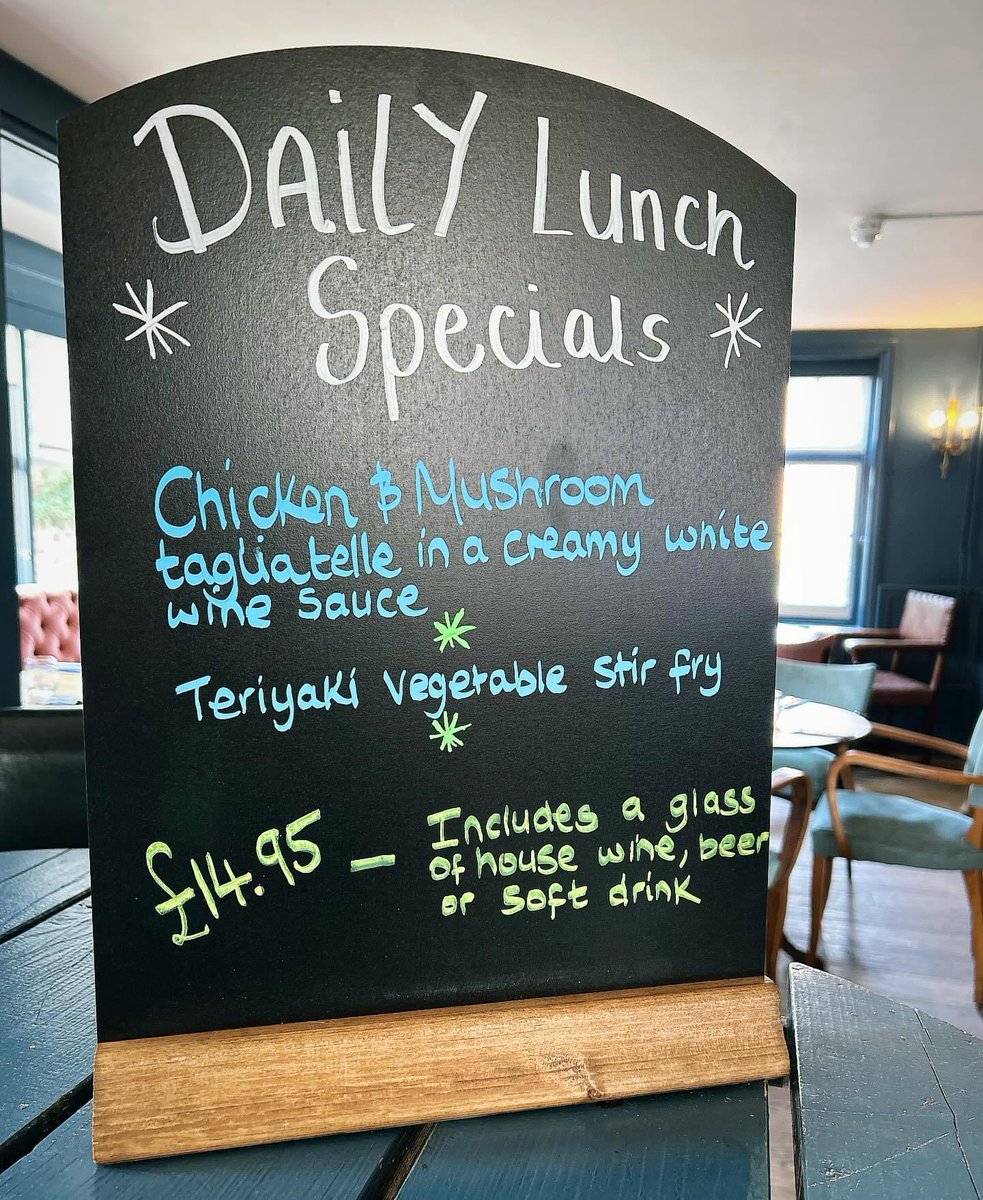 DAilY Lunch
Specials
Chicken & Mushroom
tagliatelle in a creamy white
wine sauce
Teriyaki vegetable stir fry
£14.95 - Includes a glass
of house wine, beer
or soft drink